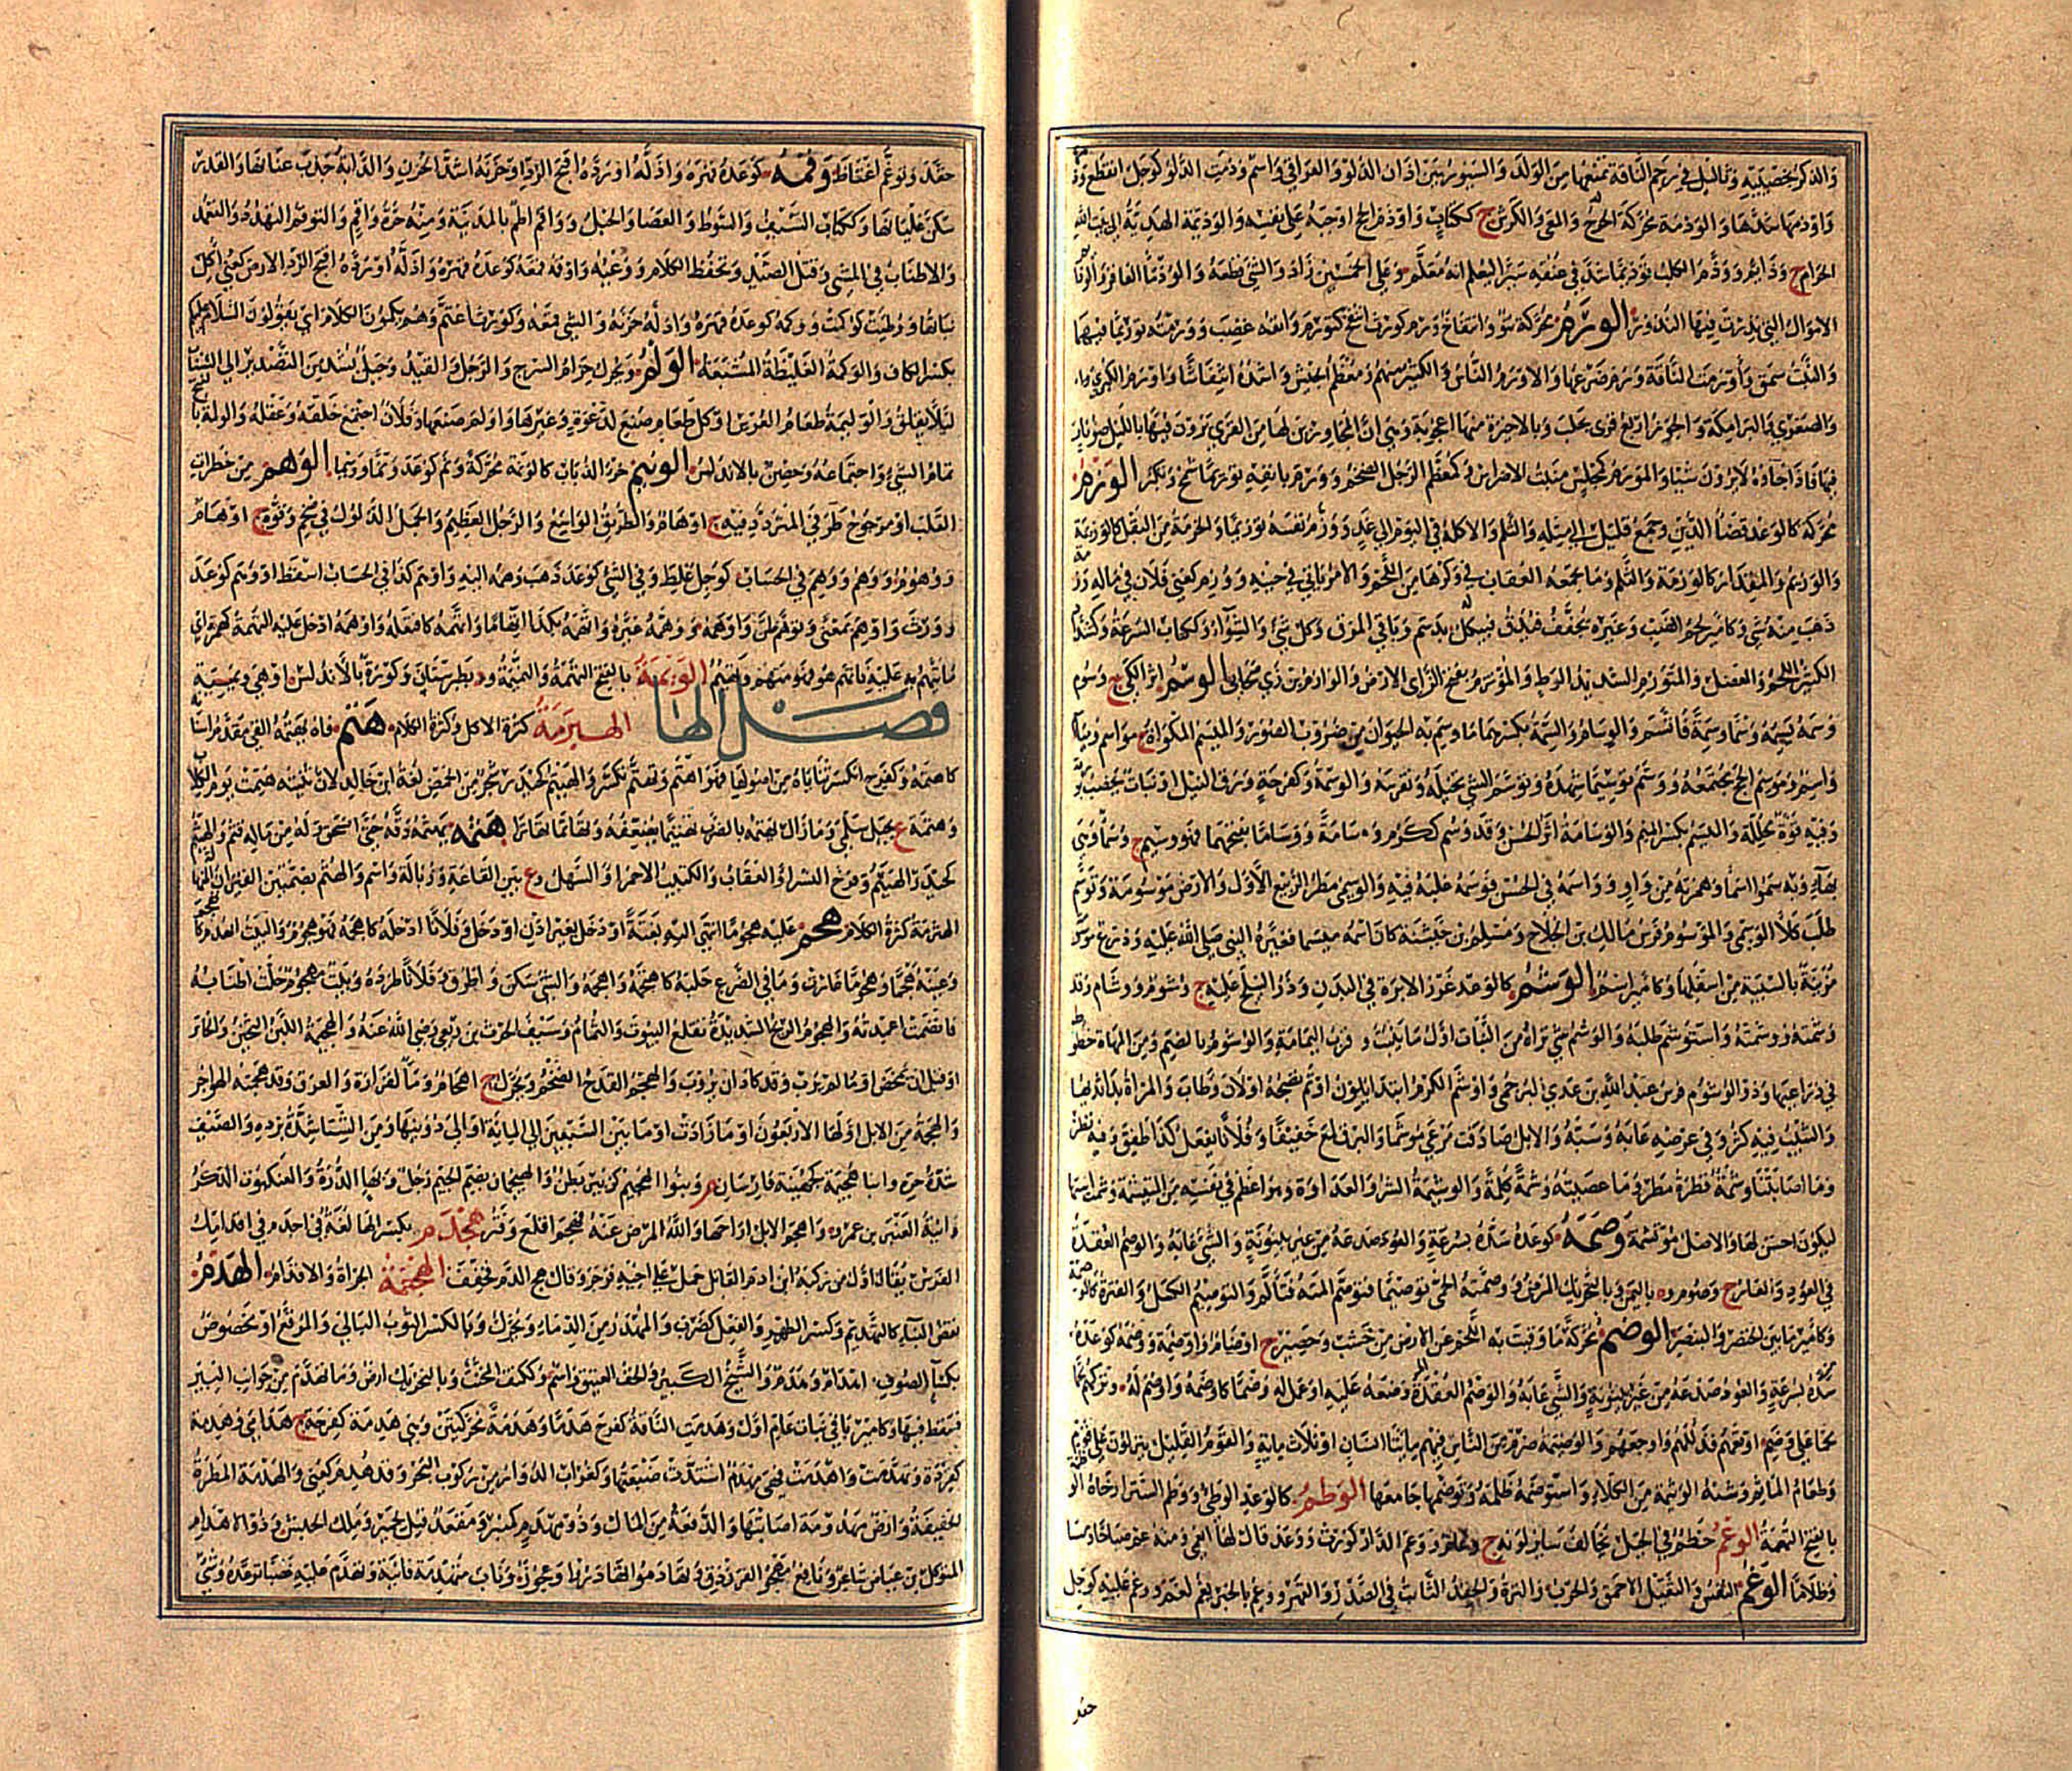 والذكر بخصييه وثآليل في رحم الناقة تمنعها من الولد والسيور بين آذان الدلو والعراقي واسم وذمت الدلو كوجل انقطع وذمها
واوذمها شدها والوذمة محركة المعى والكرش ج ككتاب واوذم الحج اوجبه على نفسه والوذيمة الهدية الى بيت الله
الحرام ج وذائم ووذم الكلب توذيما شد في عنقه سيرا ليعلم انه معلم وعلى الخمسين زاد والشئ قطعه والوذماء العاقر والوذائم
الاموال التي نذرت فيها النذور الورم محركة نتوء وانتفاخ ورم كورث انتفخ كتورم وانفه غضب وورمته توريما فيهما
والنبت سمق واورمت الناقة ورم ضرعها والاورم الناس او الكثير منهم ومعظم الجيش واشده انتفاشا واورم الكبرى
والصغرى والبرامكة والجوز اربع قرى بحلب وبالاخيرة منها اعجوبة وهي ان المجاورين لها من القرى يرون فيها بالليل ضوء نار
فيها فاذا جاؤه لا يرون شيئا والمورم كمجلس منبت الاضراس وكمعظم الرجل الضخم وورم بانفه توريما شمخ وتكبر الوزم
محركة كالوعد قضاء الدين وجمع قليل الى مثله والثلم والاكلة في اليوم الى غد ووزم نفسه توزيما والحزمة من البقل كالوزمة
والوزيم والمقدار كالوزمة والثلم وما يجمعه العقاب في وكرها من اللحم والامر ياتي في حينه ووزم كعني فلان في ماله وزمة
ذهب منه شئ وكامير لحم الضب وغيره يجفف فيدق فيبكل بدسم وباقي المرق وكل شئ والشواء وككتاب السرعة وكشداد
الكثير اللحم والعضل والمتوزم الشديد الوطء الوسم اثر الكي ج وسوم
وسمه يسمه وسما وسمة فاتسم والوسام والسمة بكسرهما ما وسم به الحيوان من ضروب الصور والميسم المكواة ج مواسم ومياسم
واسم وموسم الحج مجتمعه ووسم توسيما شهده وتوسم الشئ تخيله وتفرسه والوسمة وكفرحة ورق النيل او نبات يخضب بورقه
وفيه قوة محللة والميسم بكسر الميم والوسامة اثر الحسن وقد وسم ككرم وسامة ووساما بفتحهما فهو وسيم ج وسماء وهي
بهاء وبه سموا اسماء وهمزته من واو وواسمه في الحسن فوسمه غلبه فيه والوسمي مطر الربيع الاول والارض موسومة وتوسم
طلب كلأ الوسمي والموسوم فرس مالك بن الجلاح ومسلم بن خيشنة كان اسمه ميسما فغيره النبي صلى الله عليه ودرع موسومة
مزينة بالشية من اسفلها وكامير اسم الوشم كالوعد غرز الابرة في البدن وذر النيلج عليه ج وشوم ووشام وقد
وشمته ووشمته واستوشم طلبه والوشم شئ تراه من النبات اول ما ينبت و قرب اليمامة والوشوم بالضم ومن المهاة خطوط
في ذراعيها وذو الوشوم فرس عبد الله بن عدي البرجمي واوشم الكرم ابتدا يلون او تم نضجه او لان وطاب والمراة بدا ثديها
والشيب فيه كثر وفي عرضه عابه وسبه والابل صادفت مرعى موشما والبرق لمع خفيفا وفلان يفعل كذا طفق وفيه نظر
وما اصابتنا وشمة قطرة مطر وما عصيته وشمة كلمة والوشيمة الشر والعداوة وهو اعظم في نفسه من المتشمة وشمت استها
ليكون احسن لها والاصل موتشمة وصمه كوعده شده بسرعة والعود صدعه من غير بينونة والشئ عابه والوصم العقدة
في العود والعار ج وصوم و باليمن وبالتحريك المرض ووصمته الحمى توصيما فتوصم المته فتالم والتوصيم الكسل والفترة كالوصمة
وكامير ما بين الخنصر والبنصر الوضم محركة ما وقيت به اللحم عن الارض من خشب وحصير ج اوضام واوضمة ووضمه كوعده
وضعه عليه او عمل له وضما كاوضمه واوضم له وتركهم لحما
على وضم اوقعهم فذللهم واوجعهم والوضيمة صرم من الناس فيهم مائتا انسان او ثلاثمائة والقوم القليل ينزلون على قوم
وطعام الماتم وشبه الوثيمة من الكلاء واستوضمه ظلمه وتوضمها جامعها الوطم كالوعد الوطئ ووطم الستر ارخاه الوظمة
بالفتح التهمة الوعم خط في الجبل يخالف سائر لونه ج وعام ووعم الدار كورث ووعد قال لها انعمي ومنه عم صباحا ومساء
وظلاما الوغم النفس والثقيل الاحمق والحرب والترة والحقد الثابت في الصدر والقهر ووغم بالخبر يغم لغم ووغم عليه كوجل
حقد
حقد وتوغم اغتاظ وقمه كوعده قهره واذله او رده اقبح الرد او حزنه اشد الحزن والدابة جذب عنانها والقدر
سكن غليانها وككتاب السيف والسوط والعصا والحبل وواقم اطم بالمدينة ومنه حرة واقم والتوقم التهدد والتعمد
والاطناب في الشئ وقتل الصيد وتحفظ الكلام ووعيه واوقمه قمعه وكمه كوعده قهره واذله او رده اقبح الرد الارض كعني اكل
نباتها ووطئت كوكمت ووكمه كوعده قهره واذله حزنه والشئ قمعه وكورث اغتم وهم يكمون الكلام اي يقولون السلام عليكم
بكسر الكاف والوكمة الغليظة المشبعة الولم ويحرك حزام السرج والرحل والقيد وحبل يشد من التصدير الى السناف
لئلا يقلق والوليمة طعام العرس او كل طعام صنع لدعوة وغيرها واولم صنعها وفلان اجتمع خلقه وعقله والولمة بالفتح
تمام الشئ واجتماعه وحصن بالاندلس الونيم خرء الذباب كالونمة محركة ونم كوعد ونما وونيما الوهم من خطرات
القلب او مرجوح طرفي المتردد فيه ج اوهام والطريق الواسع والرجل العظيم والجمل الذلول في ضخم وقوة ج اوهام
ووهوم ووهم ووهم في الحساب كوجل غلط وفي الشئ كوعد ذهب وهمه اليه واوهم كذا في الحساب اسقط او وهم كوعد
وورث واوهم بمعنى وتوهم ظن واوهمه ووهمه غيره واتهمه بكذا اتهاما واتهمه كافعله واوهمه ادخل عليه التهمة كهمزة اي
ما يتهم به عليه فاتهم هو فهو متهم وتهيم الويمة بالفتح التهمة والنميمة و بطبرستان وكورة بالاندلس
فصل الها الهبرمة كثرة الاكل وكثرة الكلام هتم فاه يهتمه القى مقدم اسنانه
كاهتمه وكفرح انكسرت ثناياه من اصولها فهو اهتم وتهتم تكسر والهيتم كحيدر شجر من الحمض لغة ابي خالد لان ثنيته هتمت يوم الكلاب
وهتمة ع بجبل سلمى وما زال يهتمه بالضرب تهتيما يضعفه وتهاتما تهاترا هثمه يهثمه دقه حتى انسحق وله من ماله قثم والهيثم
كحيدر الهيثم وفرخ النسر او العقاب والكثيب الاحمر او السهل و ع بين القاعة وزبالة واسم والهثم بضمتين القيزان المنهالة
الهثرمة كثرة الكلام هجم عليه هجوما انتهى اليه بغتة او دخل بغير اذن او دخل وفلانا ادخله كاهجمه فهو هجوم والبيت انهدم كانهجم
وعينه هجما وهجوما غارت وما في الضرع حلبه كاهتجمه واهجمه والشئ سكن واطرق وفلانا طرده وبيت مهجوم حلت اطنابه
فانضمت اعمدته والهجوم الريح الشديدة تقلع البيوت والثمام وسيف الحرث بن ربعي رضي الله عنه والهجيمة اللبن الثخين والخاثر
او قبل ان يمخض او ما لم يرب وقد كاد ان يروب والهجم القدح الضخم ويحرك ج اهجام وماء لفزارة والعرق وقد هجمته الهواجر
والهجمة من الابل اولها الاربعون الى ما زادت او ما بين السبعين الى المائة او الى دوينها ومن الشتاء شدة برده والصيف
شدة حره وابنا هجيمة كجهينة فارسان م وبنوا الهجيم كزبير بطن والهيجمان بضم الجيم رجل وبهاء الدرة والعنكبوت الذكر
وابنة العنبر بن عمرو واهجم الابل اراحها والله المرض عنه فهجم اقلع وفتر هجدم بكسر الهاء لغة في اجدم في اقدامك
الفرس يقال اول من ركبه ابن ادم القاتل حمل على اخيه فزجره وقال هج الدم فخفف الهجنمة الجراة والاقدام الهدم
نقض البناء كالتهديم وكسر الظهر والفعل كضرب والمهدر من الدماء ويحرك وبالكسر الثوب البالي والمرقع او مخصوص
بكساء الصوف ج اهدام وهدم والشيخ الكبير والخف العتيق واسم وككتف المخنث وبالتحريك ارض وما تهدم من جوانب البئر
فسقط فيها وكامير باقي نبات عام اول وهدمت الناقة كفرح هدما وهدمة محركتين وهي هدمة كفرحة ج هدامى وهدمة
كقردة وتهدمت واهدمت فهي مهدم اشتدت ضبعتها وكغراب الدوار من ركوب البحر وقد هدم كعني والهدمة المطرة
الخفيفة وارض مهدومة اصابتها والدفعة من المال وذو مهدم كمنبر ومقعد قيل لحمير وملك الحبش وذو الاهدام
المتوكل بن عياض شاعر ونافع مهجو الفرزدق وتهادموا تهادروا وعجوز وناب متهدمة فانية وتهدم عليه غضبا توعده وشئ